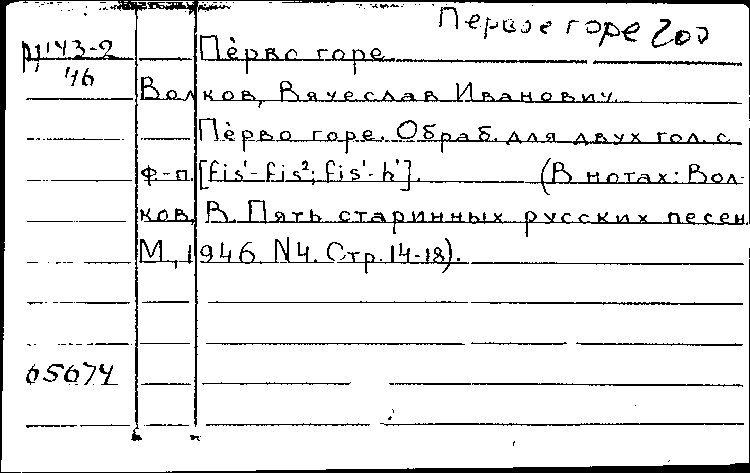 Первое горе
143-2
46
Пѐрво горе
Волков, Вячеслав Иванович.
Пѐрво горе. Обраб. для двух гол. с
ф-п. [fis¹-fis²; fis¹-h¹]. (В нотах: Вол-
ков, В. Пять старинных русских песен.
М., 1946. N4. Стр. 14-18).
65674